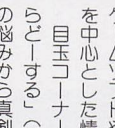 を中心とした情
目玉コーナー
らどーする」
の悩みから真剣